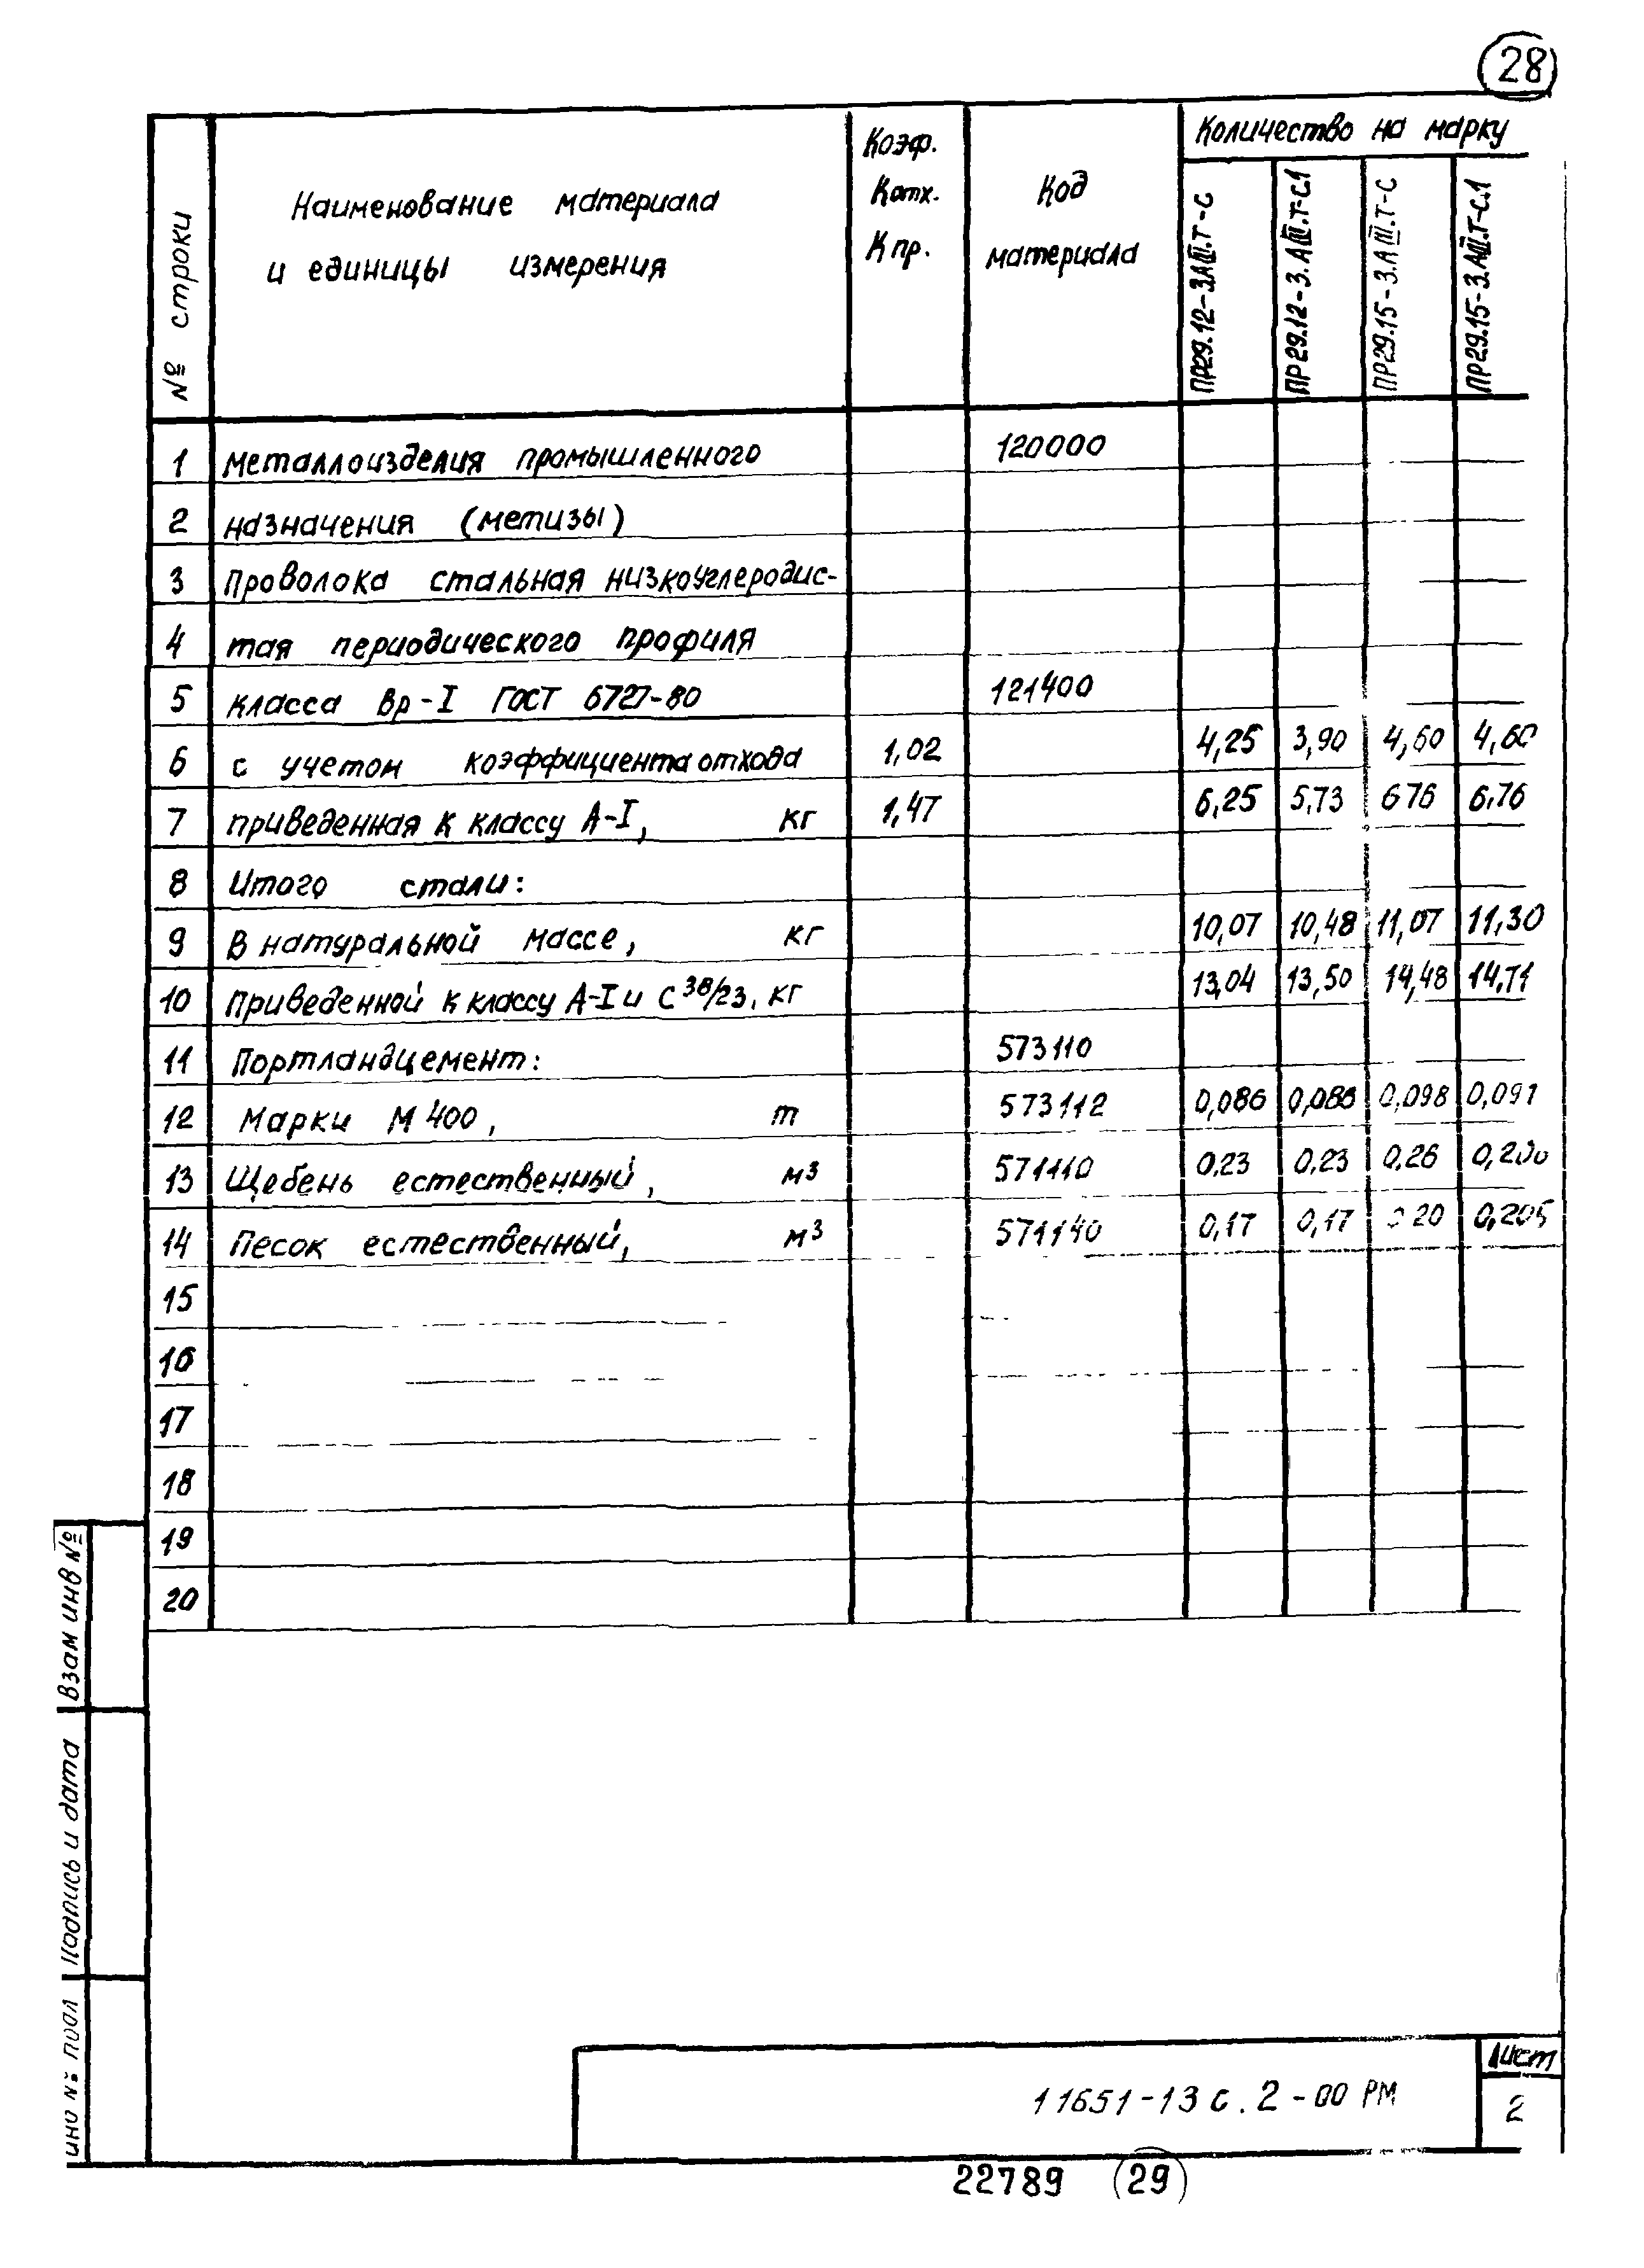 28
№ строки
Наименование материала
и единицы измерения
Коэф.
Котх.
К пр.
Код
материала
Количество на марку
ПР29.12-3.АIII.Т-С
ПР29.12-3.АIII.Т-С1
ПР29.15-3.АIII.Т-С
ПР29.15-3.АIII.Т-С.1
1 Металлоизделия промышленного 120000
2 назначения (метизы)
3 Проволока стальная низкоуглеродис-
4 тая периодического профиля
5 класса Вр-I ГОСТ 6727-80 121400
6 с учетом коэффициента отхода 1,02 4,25 3,90 4,60 4,60
7 приведенная к классу А-I, кг 1,47 6,25 5,73 6 76 6,76
8 Итого стали:
9 В натуральной массе, кг 10,07 10,48 11,07 11,30
10 Приведенной к классу А-I и С 38/23, кг 13,04 13,50 14,48 14,71
11 Портландцемент: 573110
12 Марки М 400, т 573112 0,086 0,086 0,098 0,091
13 Щебень естественный, м³ 571110 0,23 0,23 0,26
14 Песок естественный, м³ 571140 0,17 0,17 20 0,205
15
16
17
18
19
20
Взам инв №
Подпись и дата
инв № подл
11651-13 с. 2 - 00 РМ
Лист
2
22789 (29)